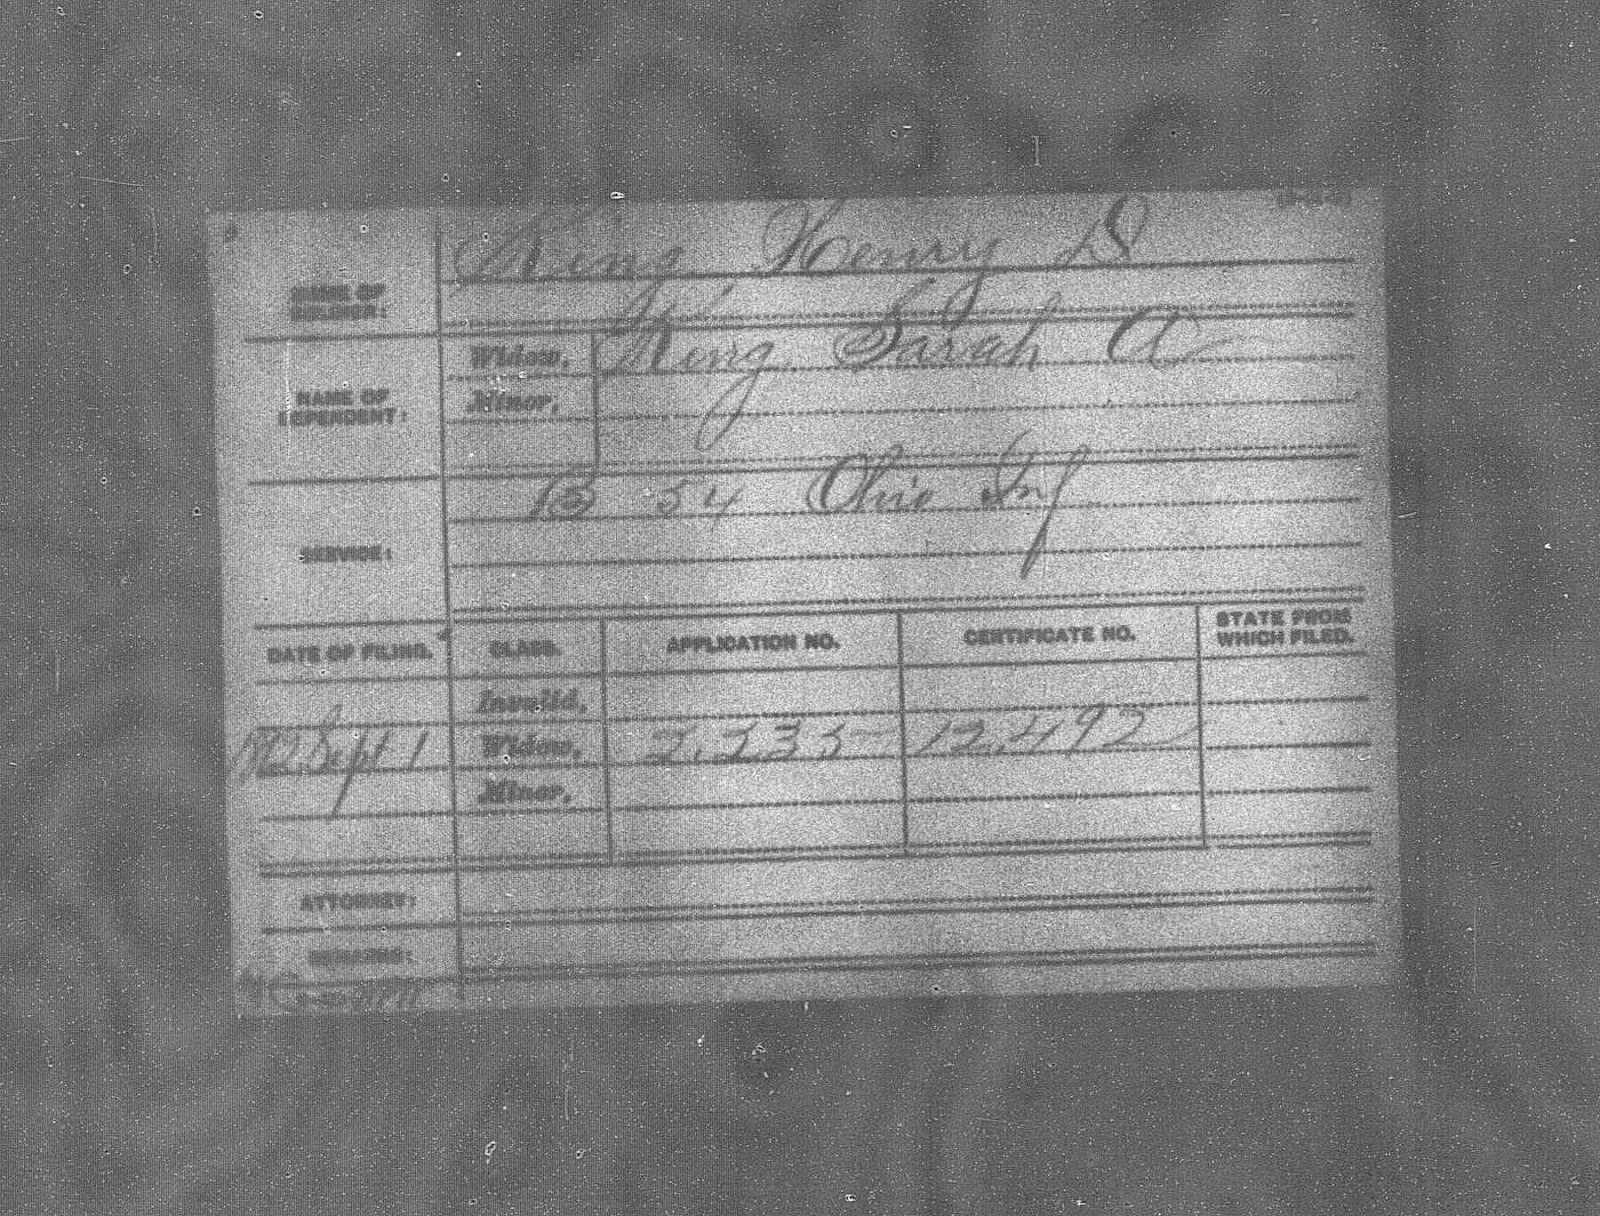 NAME OF SOLDIER: King Henry D
NAME OF DEPENDENT: Widow, King Sarah A
Minor,
SERVICE: B 54 Ohio Inf
DATE OF FILING. CLASS. APPLICATION NO. CERTIFICATE NO. STATE FROM WHICH FILED.
Invalid,
Sept 1 Widow, 12,492
Minor,
ATTORNEY:
REMARKS: